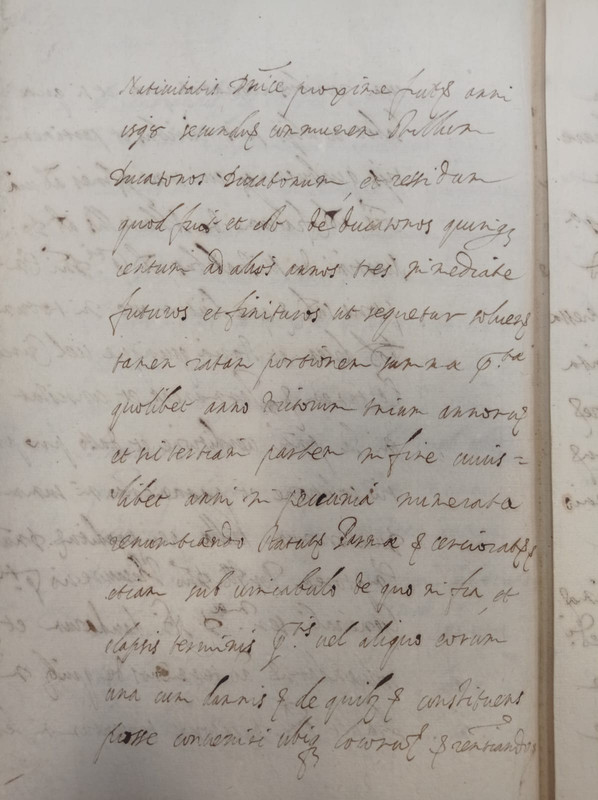 Nativitatis Dnice proxime fut anni
secundum communem Stillum
Ducatonos Ducatonum, et residum
quod fuit et est de ducatonos quing
centum ad alios annos tres immediate
futuros et finituros ut sequetur solven
tamen ratam portionem summa
quolibet anno dictorum trium annoru
et sic tertiam partem in fine cuius=
libet anni in pecunia numerata
renuntiando Parmæ & cerciorat
etiam sub vinculo de quo infra, et
elapsis terminis vel aliquo eorum
una cum damnis & de quib & constituens
posse conveniri ubiq locoru &